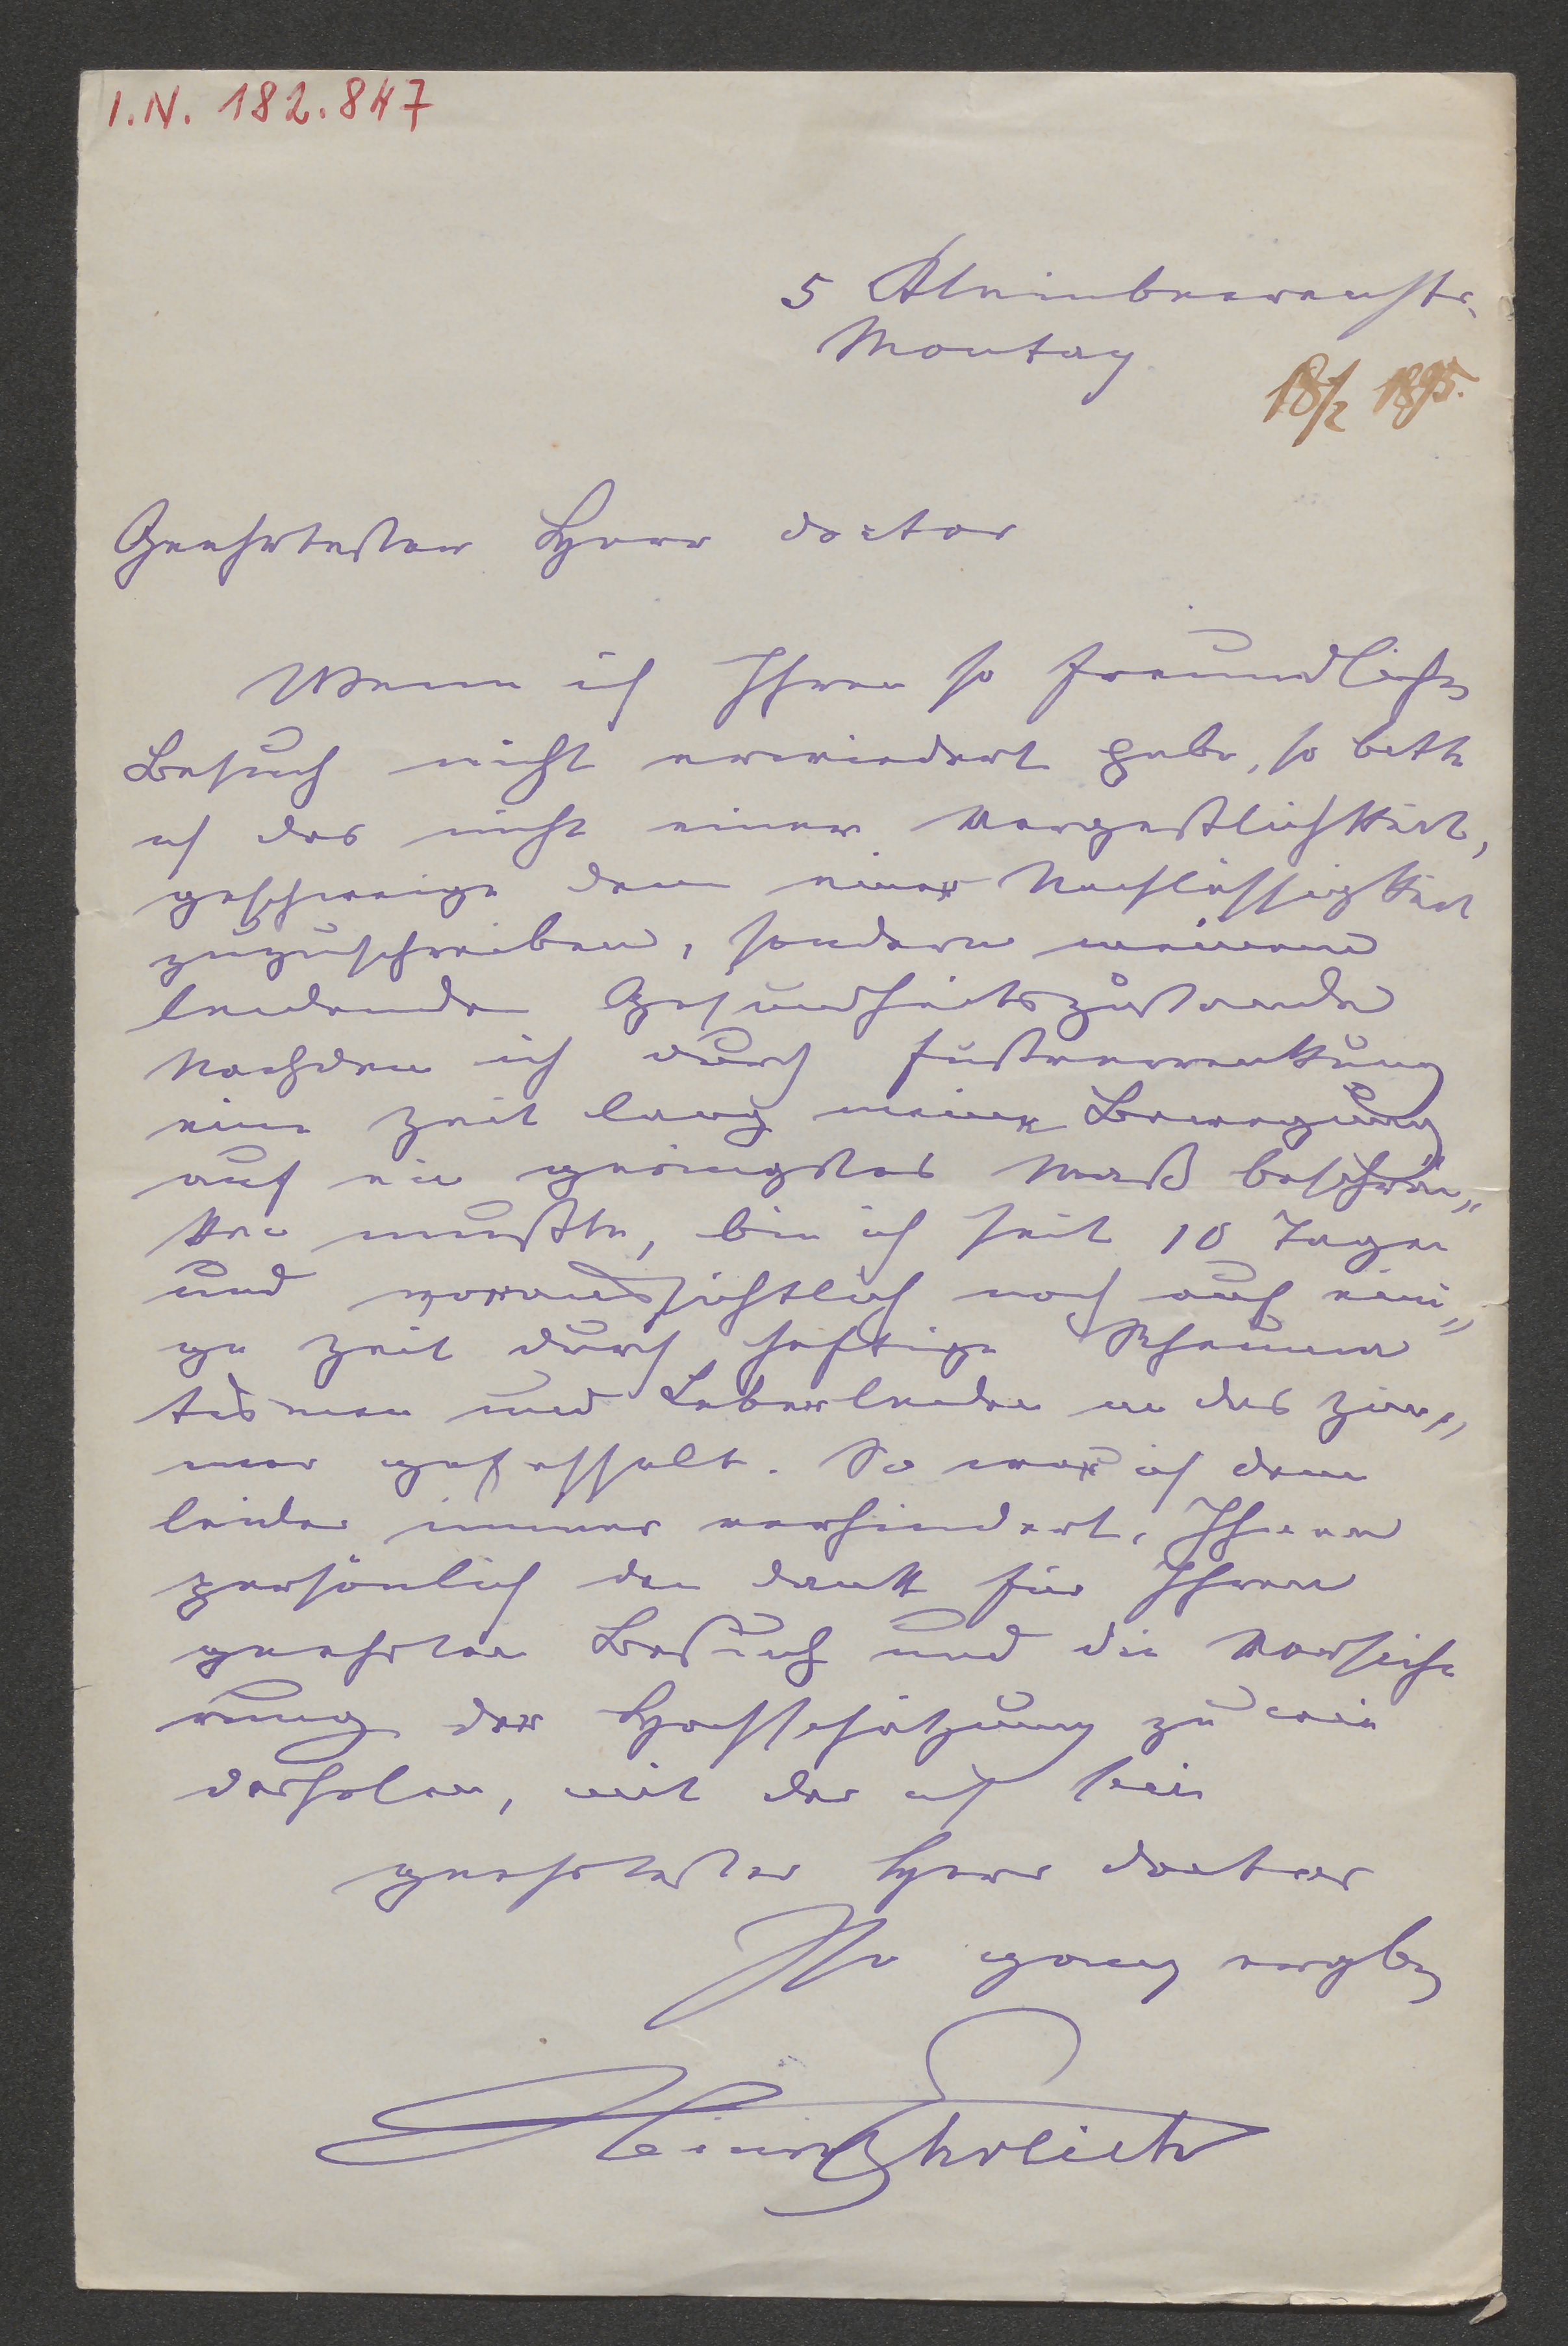 I.N. 182.847
5 Kleinbeerenstr.
Montag
18/2 1895.
Geehrtester Herr Doctor
Wenn ich Ihren so freundlichen
Besuch nicht erwiedert habe, so bitte
ich das nicht einer Vergeßlichkeit,
geschweige denn einer Nachlässigkeit
zuzuschreiben, sondern meinem
leidenden Gesundheitszustande
Nachdem ich durch Fußverrenkung
eine Zeit lang meine Bewegung
auf ein geringstes Maß beschrän„
ken mußte, bin ich seit 10 Tagen
und voraussichtlich noch auf eini„
ge Zeit durch heftige Rheuma
tismen und Leberleiden an das Zim„
mer gefesselt. So war ich denn
leider immer verhindert, Ihnen
persönlich den Dank für Ihren
geehrten Besuch und die Versiche
rung der Hochschätzung zu wie
derholen, mit der ich bin
geehrtester Herr Doctor
Ihr ganz ergbn
Heinr Ehrlich